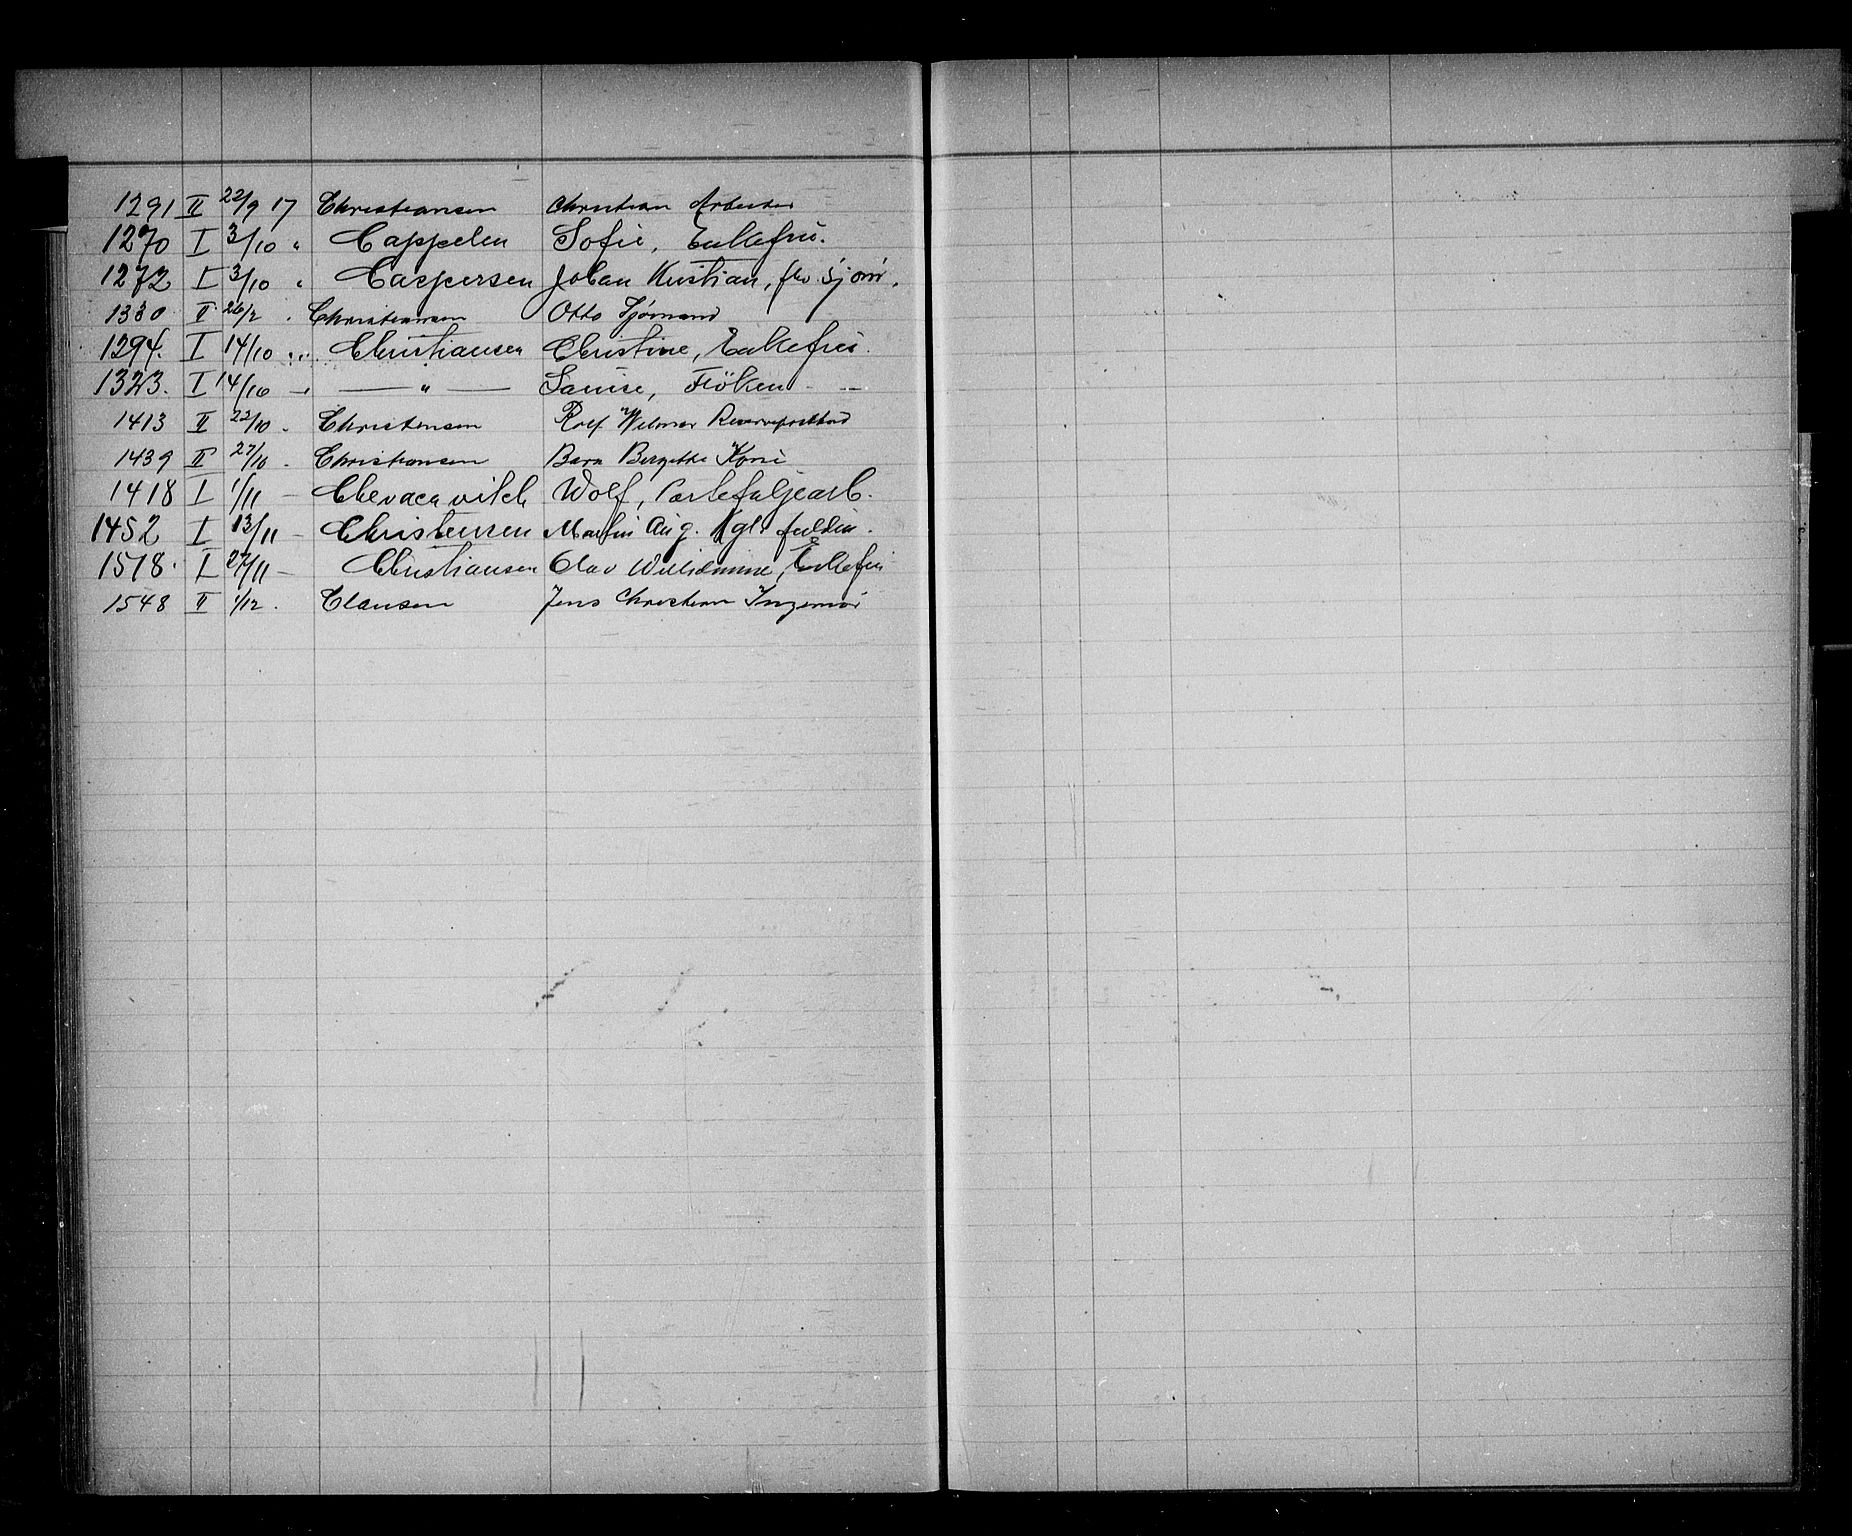 1291 II 22/9 17 Christiansen Christian Arbeider
1270 I 3/10 " Cappelen Sofie, Enkefru.
1272 I 3/10 " Caspersen Johan Kristian, fhv. Sjøm.
1330 II 26/2 . Christiansen Otto Sjømand
1294. I 14/10 " Christiansen Christine, Enkefru.
1323. I 14/10 — " — Fröken
1413 II 22/10 . Christensen Rolf Wilmar Reservepostbud
1439 II 27/10 . Christiansen Bergethe Kone
1418 I 1/11 — Wolf, Porteføljearb.
1452 I 13/11 — Christensen Martin Aug. kgl. fuldm.
1518. I 27/11 — Christiansen Enkefru
1548 II 1/12 . Clausen Jens Christian Ingeniør